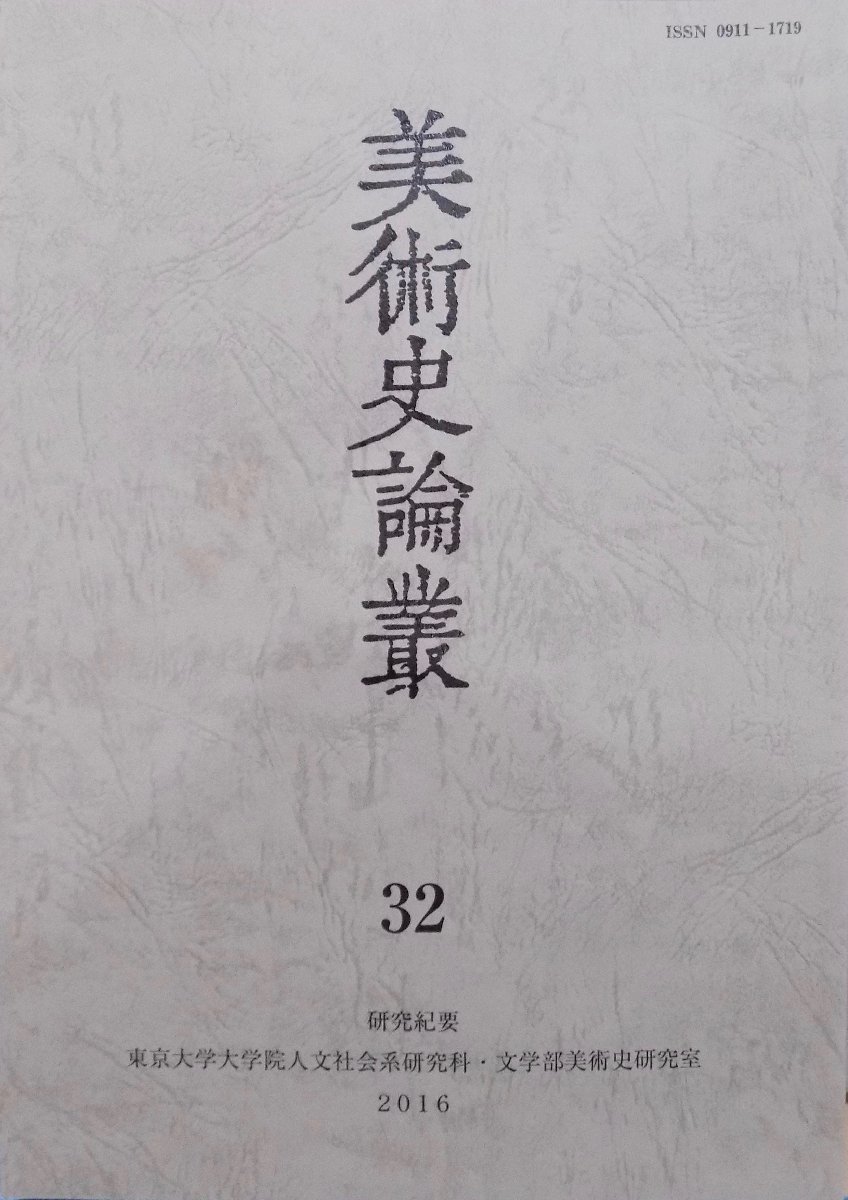 ISSN 0911-1719
美術史論叢
32
研究紀要
東京大学大学院人文社会系研究科・文学部美術史研究室
2016